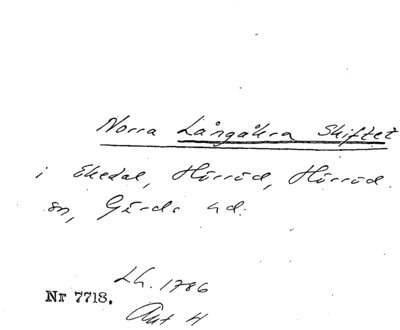 Norra Långåkra Skiftet
i Ekedal, Hörröd, Hörröd
sn, Gärds hd.
Lh. 1786
Nr 7718.
Akt 4